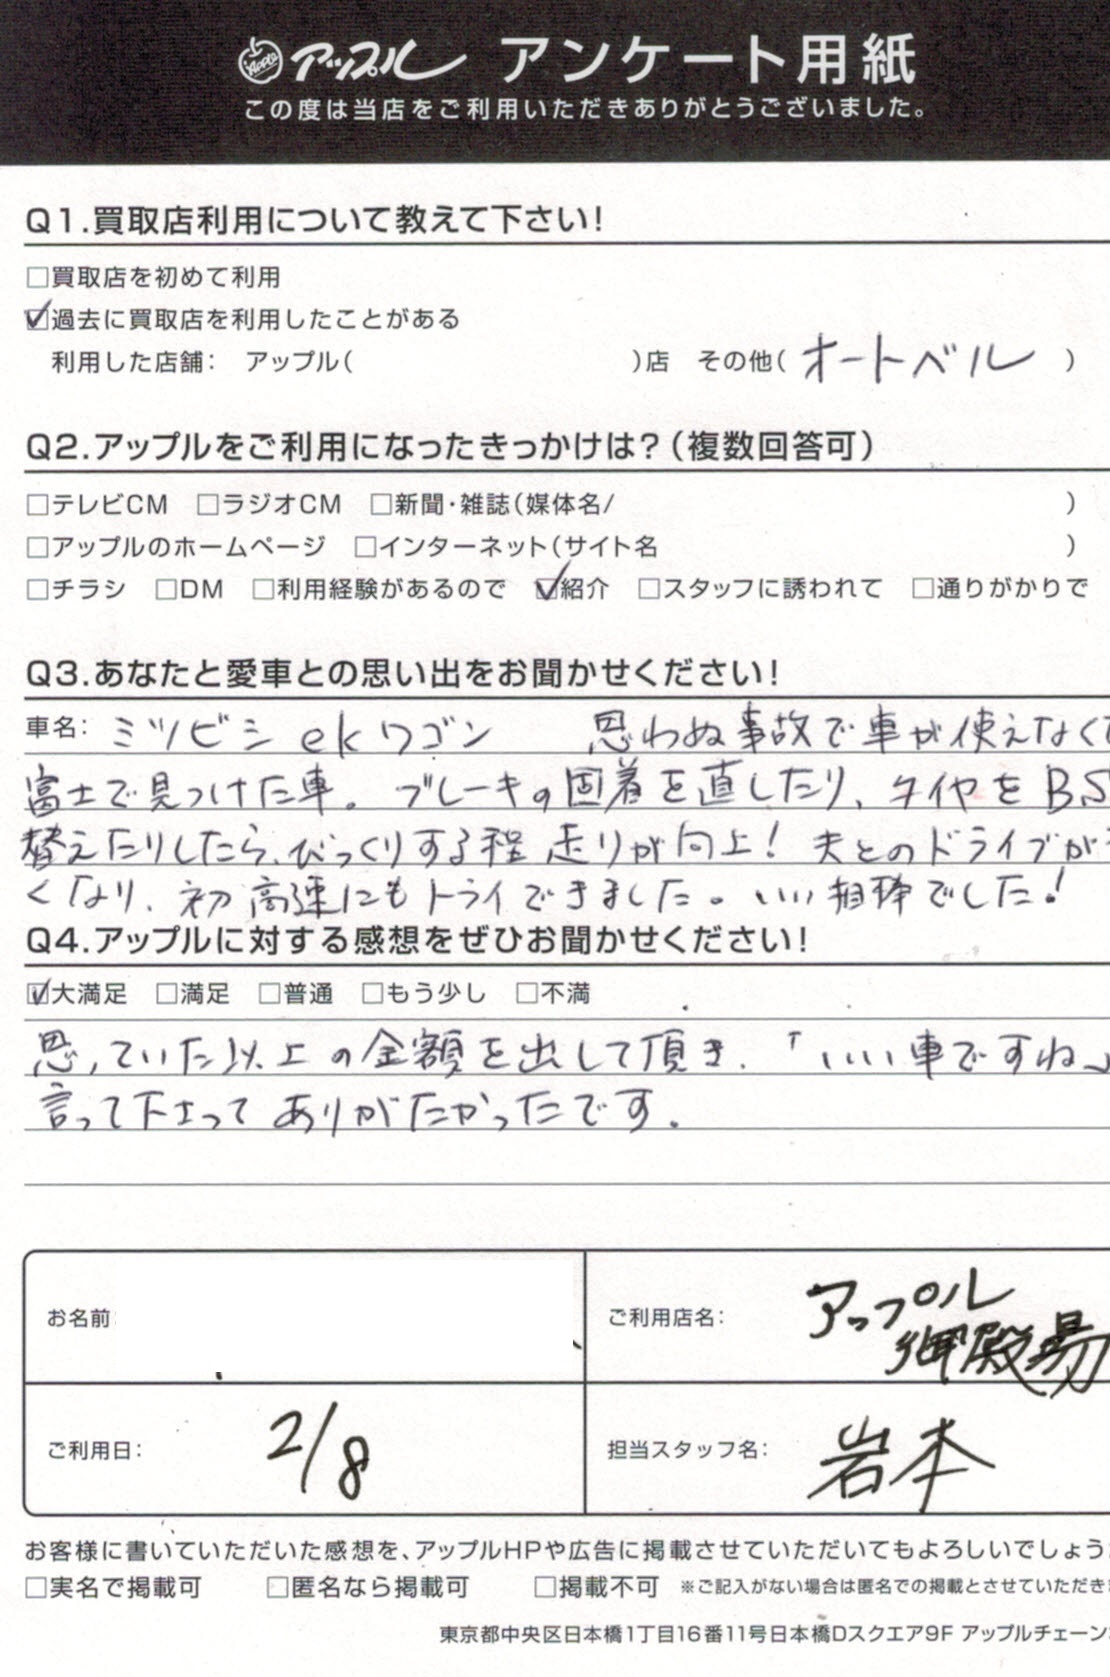 Apple アップル アンケート用紙
この度は当店をご利用いただきありがとうございました。
Q1.買取店利用について教えて下さい!
□買取店を初めて利用
☑過去に買取店を利用したことがある
利用した店舗: アップル( )店 その他( オートベル )
Q2.アップルをご利用になったきっかけは?(複数回答可)
□テレビCM □ラジオCM □新聞・雑誌(媒体名/ )
□アップルのホームページ □インターネット(サイト名 )
□チラシ □DM □利用経験があるので ☑紹介 □スタッフに誘われて □通りがかりで
Q3.あなたと愛車との思い出をお聞かせください!
車名: ミツビシ ekワゴン 思わぬ事故で車が使えなく
富士で見つけた車。ブレーキの固着を直したり、タイヤをBS
替えたりしたら、びっくりする程 走りが向上! 夫とのドライブが
くなり、初高速にもトライできました。いい相棒でした!
Q4.アップルに対する感想をぜひお聞かせください!
☑大満足 □満足 □普通 □もう少し □不満
思っていた以上の金額を出して頂き、「いい車ですね」
言って下さってありがたかったです。
お名前:
ご利用店名: アップル
御殿場
ご利用日: 2/8
担当スタッフ名: 岩本
お客様に書いていただいた感想を、アップルHPや広告に掲載させていただいてもよろしいでしょう
□実名で掲載可 □匿名なら掲載可 □掲載不可 ※ご記入がない場合は匿名での掲載とさせていただき
東京都中央区日本橋1丁目16番11号日本橋Dスクエア9F アップルチェーン